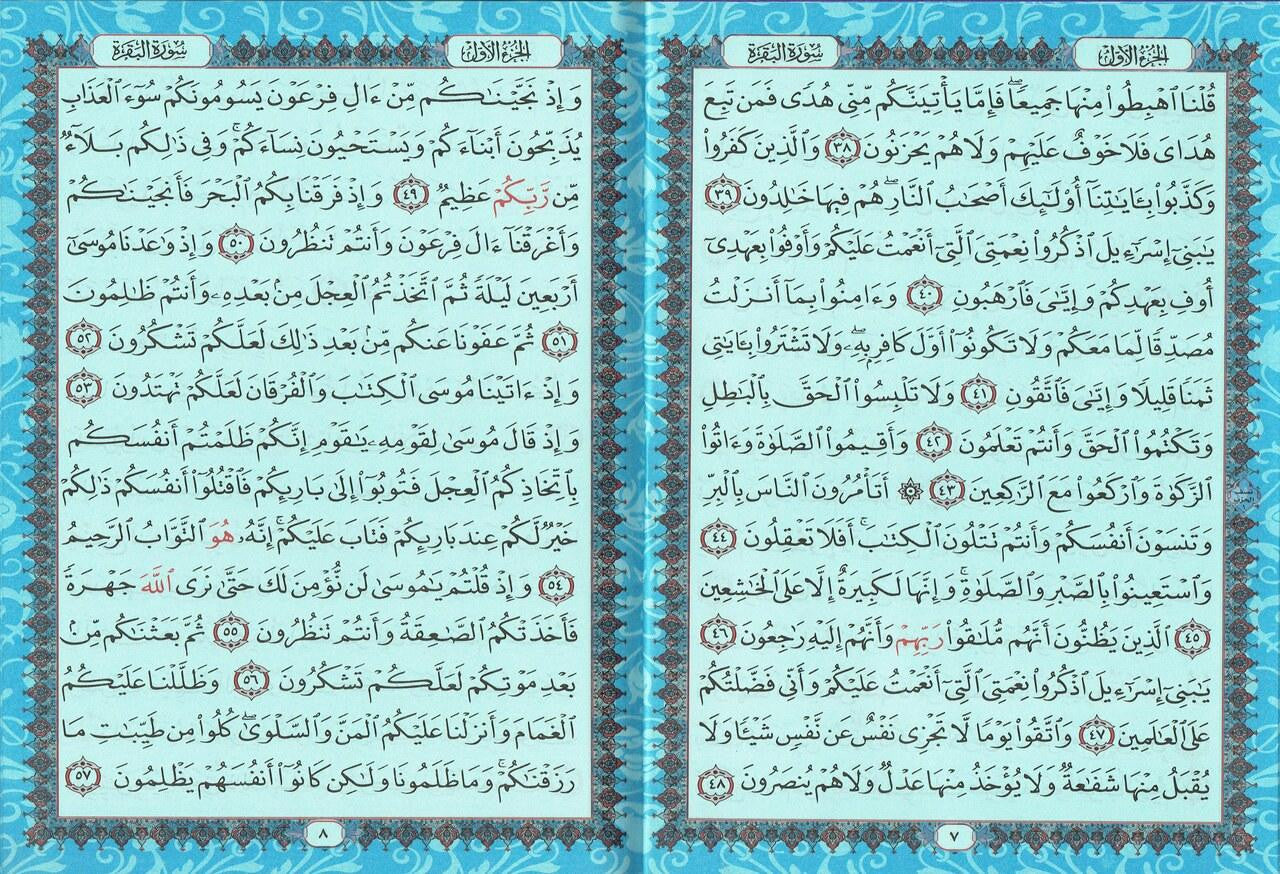 الجزء الأول
سورة البقرة
قُلْنَا ٱهْبِطُوا۟ مِنْهَا جَمِيعًاۖ فَإِمَّا يَأْتِيَنَّكُم مِّنِّى هُدًى فَمَن تَبِعَ
هُدَاىَ فَلَا خَوْفٌ عَلَيْهِمْ وَلَا هُمْ يَحْزَنُونَ ٣٨ وَٱلَّذِينَ كَفَرُوا۟
وَكَذَّبُوا۟ بِـَٔايَٰتِنَآ أُو۟لَٰٓئِكَ أَصْحَٰبُ ٱلنَّارِۖ هُمْ فِيهَا خَٰلِدُونَ ٣٩
يَٰبَنِىٓ إِسْرَٰٓءِيلَ ٱذْكُرُوا۟ نِعْمَتِىَ ٱلَّتِىٓ أَنْعَمْتُ عَلَيْكُمْ وَأَوْفُوا۟ بِعَهْدِىٓ
أُوفِ بِعَهْدِكُمْ وَإِيَّٰىَ فَٱرْهَبُونِ ٤٠ وَءَامِنُوا۟ بِمَآ أَنزَلْتُ
مُصَدِّقًا لِّمَا مَعَكُمْ وَلَا تَكُونُوٓا۟ أَوَّلَ كَافِرٍۭ بِهِۦۖ وَلَا تَشْتَرُوا۟ بِـَٔايَٰتِى
ثَمَنًا قَلِيلًا وَإِيَّٰىَ فَٱتَّقُونِ ٤١ وَلَا تَلْبِسُوا۟ ٱلْحَقَّ بِٱلْبَٰطِلِ
وَتَكْتُمُوا۟ ٱلْحَقَّ وَأَنتُمْ تَعْلَمُونَ ٤٢ وَأَقِيمُوا۟ ٱلصَّلَوٰةَ وَءَاتُوا۟
ٱلزَّكَوٰةَ وَٱرْكَعُوا۟ مَعَ ٱلرَّٰكِعِينَ ٤٣ ۞ أَتَأْمُرُونَ ٱلنَّاسَ بِٱلْبِرِّ
وَتَنسَوْنَ أَنفُسَكُمْ وَأَنتُمْ تَتْلُونَ ٱلْكِتَٰبَۚ أَفَلَا تَعْقِلُونَ ٤٤
وَٱسْتَعِينُوا۟ بِٱلصَّبْرِ وَٱلصَّلَوٰةِۚ وَإِنَّهَا لَكَبِيرَةٌ إِلَّا عَلَى ٱلْخَٰشِعِينَ
٤٥ ٱلَّذِينَ يَظُنُّونَ أَنَّهُم مُّلَٰقُوا۟ رَبِّهِمْ وَأَنَّهُمْ إِلَيْهِ رَٰجِعُونَ ٤٦
يَٰبَنِىٓ إِسْرَٰٓءِيلَ ٱذْكُرُوا۟ نِعْمَتِىَ ٱلَّتِىٓ أَنْعَمْتُ عَلَيْكُمْ وَأَنِّى فَضَّلْتُكُمْ
عَلَى ٱلْعَٰلَمِينَ ٤٧ وَٱتَّقُوا۟ يَوْمًا لَّا تَجْزِى نَفْسٌ عَن نَّفْسٍ شَيْـًٔا وَلَا
يُقْبَلُ مِنْهَا شَفَٰعَةٌ وَلَا يُؤْخَذُ مِنْهَا عَدْلٌ وَلَا هُمْ يُنصَرُونَ ٤٨
٧
الجزء الأول
سورة البقرة
وَإِذْ نَجَّيْنَٰكُم مِّنْ ءَالِ فِرْعَوْنَ يَسُومُونَكُمْ سُوٓءَ ٱلْعَذَابِ
يُذَبِّحُونَ أَبْنَآءَكُمْ وَيَسْتَحْيُونَ نِسَآءَكُمْۚ وَفِى ذَٰلِكُم بَلَآءٌ
مِّن رَّبِّكُمْ عَظِيمٌ ٤٩ وَإِذْ فَرَقْنَا بِكُمُ ٱلْبَحْرَ فَأَنجَيْنَٰكُمْ
وَأَغْرَقْنَآ ءَالَ فِرْعَوْنَ وَأَنتُمْ تَنظُرُونَ ٥٠ وَإِذْ وَٰعَدْنَا مُوسَىٰٓ
أَرْبَعِينَ لَيْلَةً ثُمَّ ٱتَّخَذْتُمُ ٱلْعِجْلَ مِنۢ بَعْدِهِۦ وَأَنتُمْ ظَٰلِمُونَ
٥١ ثُمَّ عَفَوْنَا عَنكُم مِّنۢ بَعْدِ ذَٰلِكَ لَعَلَّكُمْ تَشْكُرُونَ ٥٢
وَإِذْ ءَاتَيْنَا مُوسَى ٱلْكِتَٰبَ وَٱلْفُرْقَانَ لَعَلَّكُمْ تَهْتَدُونَ ٥٣
وَإِذْ قَالَ مُوسَىٰ لِقَوْمِهِۦ يَٰقَوْمِ إِنَّكُمْ ظَلَمْتُمْ أَنفُسَكُم
بِٱتِّخَاذِكُمُ ٱلْعِجْلَ فَتُوبُوٓا۟ إِلَىٰ بَارِئِكُمْ فَٱقْتُلُوٓا۟ أَنفُسَكُمْ ذَٰلِكُمْ
خَيْرٌ لَّكُمْ عِندَ بَارِئِكُمْ فَتَابَ عَلَيْكُمْۚ إِنَّهُۥ هُوَ ٱلتَّوَّابُ ٱلرَّحِيمُ
٥٤ وَإِذْ قُلْتُمْ يَٰمُوسَىٰ لَن نُّؤْمِنَ لَكَ حَتَّىٰ نَرَى ٱللَّهَ جَهْرَةً
فَأَخَذَتْكُمُ ٱلصَّٰعِقَةُ وَأَنتُمْ تَنظُرُونَ ٥٥ ثُمَّ بَعَثْنَٰكُم مِّنۢ
بَعْدِ مَوْتِكُمْ لَعَلَّكُمْ تَشْكُرُونَ ٥٦ وَظَلَّلْنَا عَلَيْكُمُ
ٱلْغَمَامَ وَأَنزَلْنَا عَلَيْكُمُ ٱلْمَنَّ وَٱلسَّلْوَىٰۖ كُلُوا۟ مِن طَيِّبَٰتِ مَا
رَزَقْنَٰكُمْۖ وَمَا ظَلَمُونَا وَلَٰكِن كَانُوٓا۟ أَنفُسَهُمْ يَظْلِمُونَ ٥٧
٨